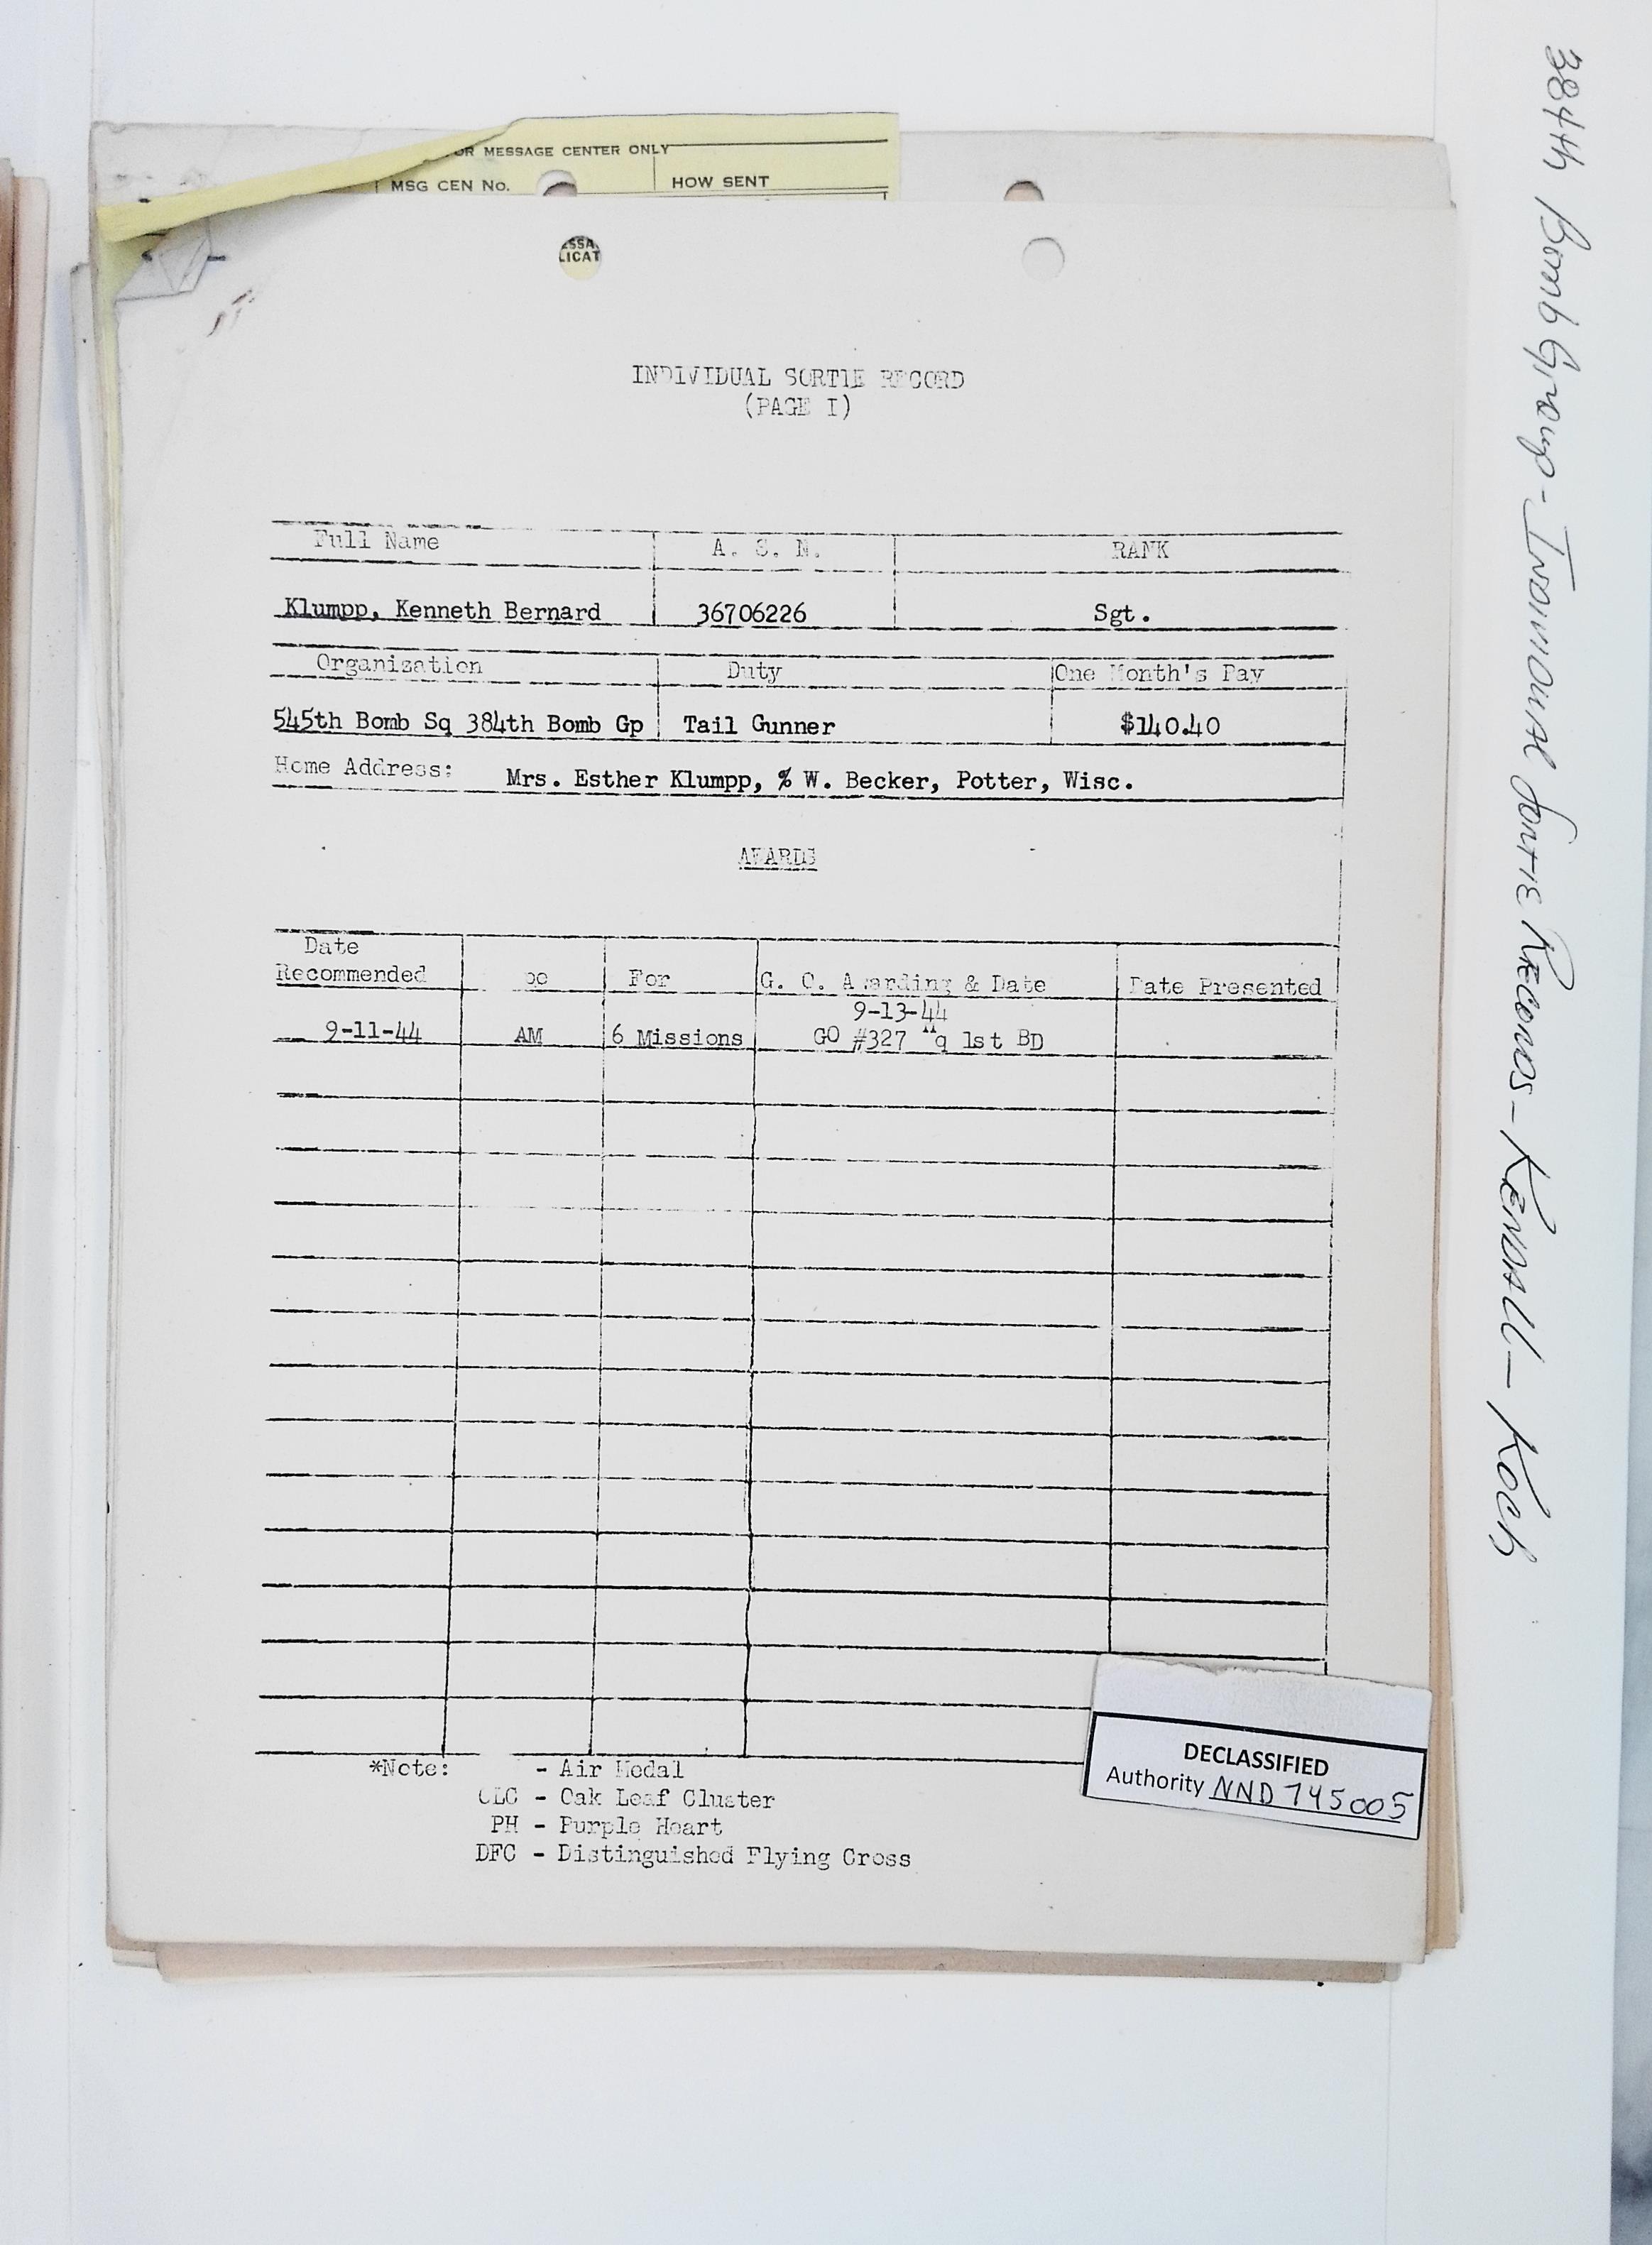 OR MESSAGE CENTER ONLY
MSG CEN No. HOW SENT
ESSA
LICAT
INDIVIDUAL SORTIE RECORD
(PAGE I)
Full Name A. S. N. RANK
Klumpp, Kenneth Bernard 36706226 Sgt.
Organization Duty One Month's Pay
545th Bomb Sq 384th Bomb Gp Tail Gunner $140.40
Home Address: Mrs. Esther Klumpp, % W. Becker, Potter, Wisc.
AWARDS
Date
Recommended For G. O. Awarding & Date Date Presented
9-13-44
9-11-44 AM 6 Missions GO #327 Hq 1st BD
*Note: - Air Medal
OLC - Oak Leaf Cluster
PH - Purple Heart
DFC - Distinguished Flying Cross
DECLASSIFIED
Authority NND 745005
384th Bomb Group - Individual Sortie Records - Kendall - Koch